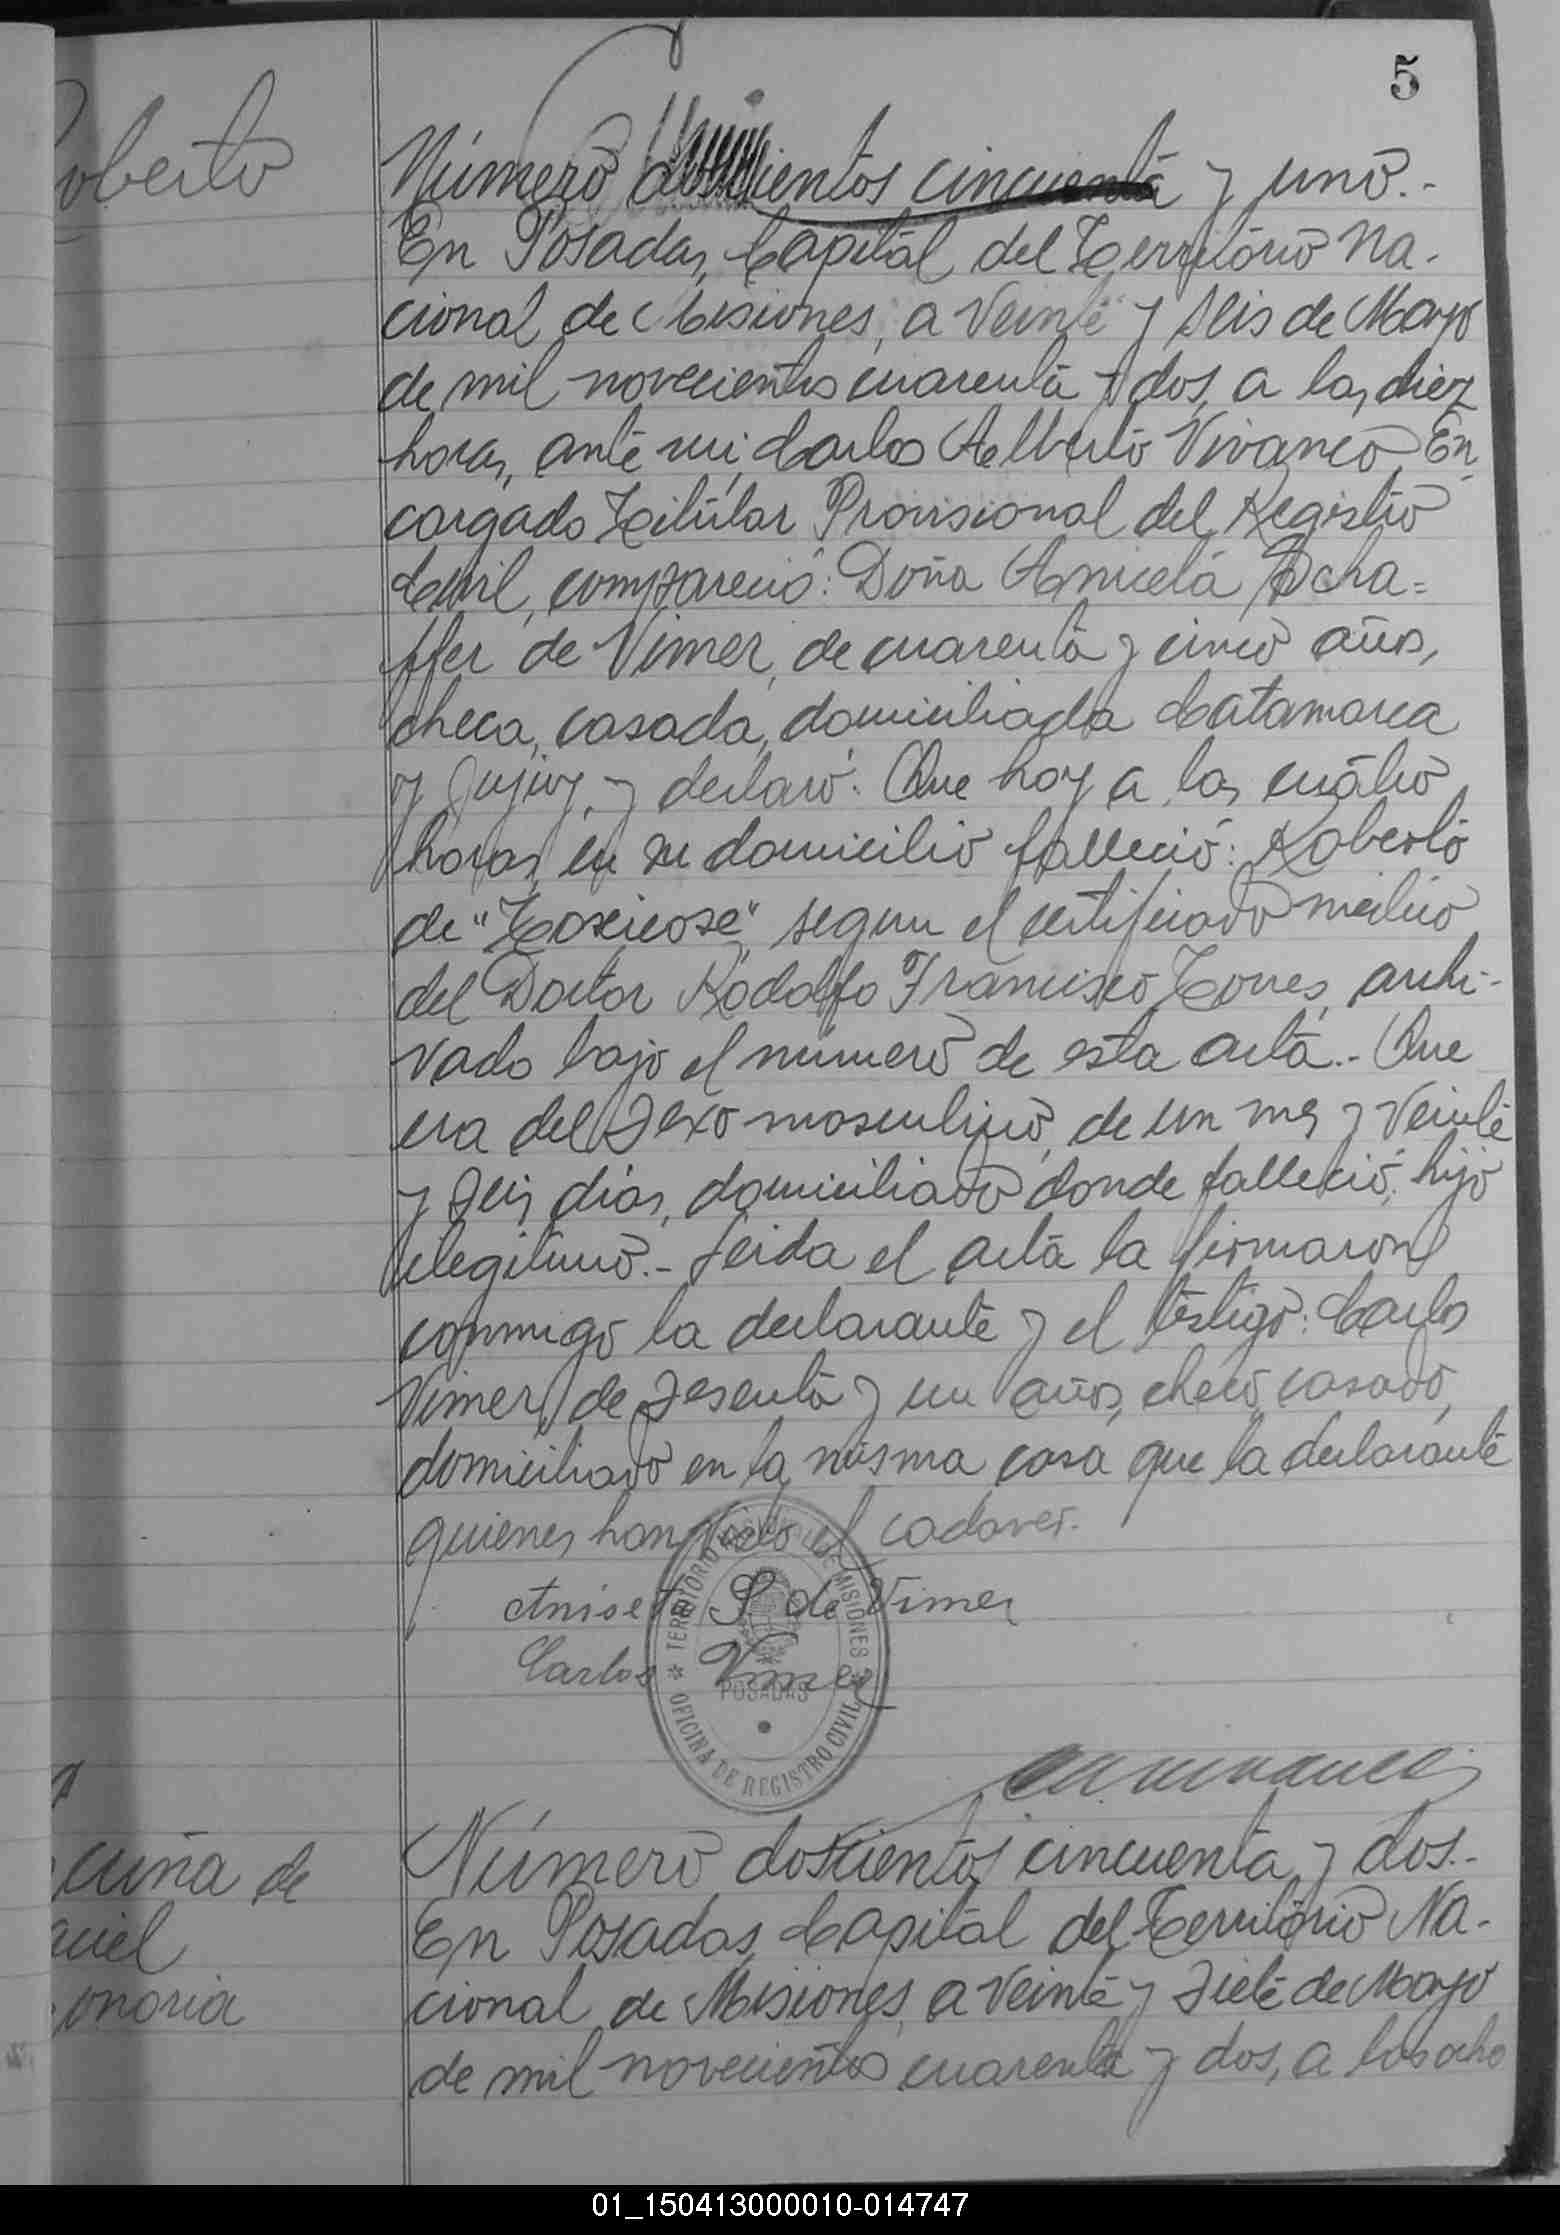 5
oberto
Número doscientos cincuenta y uno.-
En Posadas, Capital del Territorio Na-
cional de Misiones, a veinte y seis de Mayo
de mil novecientos cuarenta y dos, a las diez
horas, ante mi, Carlos Alberto Vivanco, En
cargado Titular Provisional del Registro
Civil, compareció: Doña Aniceta Scha=
ffer de Vimer, de cuarenta y cinco años,
checa, casada, domiciliada Catamarca
y Jujuy, y declaró: Que hoy a las cuatro
horas, en su domicilio falleció: Roberto
de "Toxicose", segun el certificado médico
del Doctor Rodolfo Francisco Torres, archi-
vado bajo el número de esta acta.- Que
era del sexo masculino, de un mes y veinte
y seis dias, domiciliado donde falleció, hijo
ilegitimo.- Leida el acta la firmaron
conmigo la declarante y el testigo: Carlos
Vimer, de sesenta y un años, checo, casado,
domiciliado en la misma casa que la declarante
quienes han visto el cadaver.-
Aniseta S de Vimer
Carlos Vimer
TERRITORIO NACIONAL DE MISIONES
POSADAS
OFICINA DE REGISTRO CIVIL
cuña de
aciel
onoria
Número doscientos cincuenta y dos.-
En Posadas, Capital del Territorio Na-
cional de Misiones, a veinte y siete de Mayo
de mil novecientos cuarenta y dos, a las ocho
01_150413000010-014747